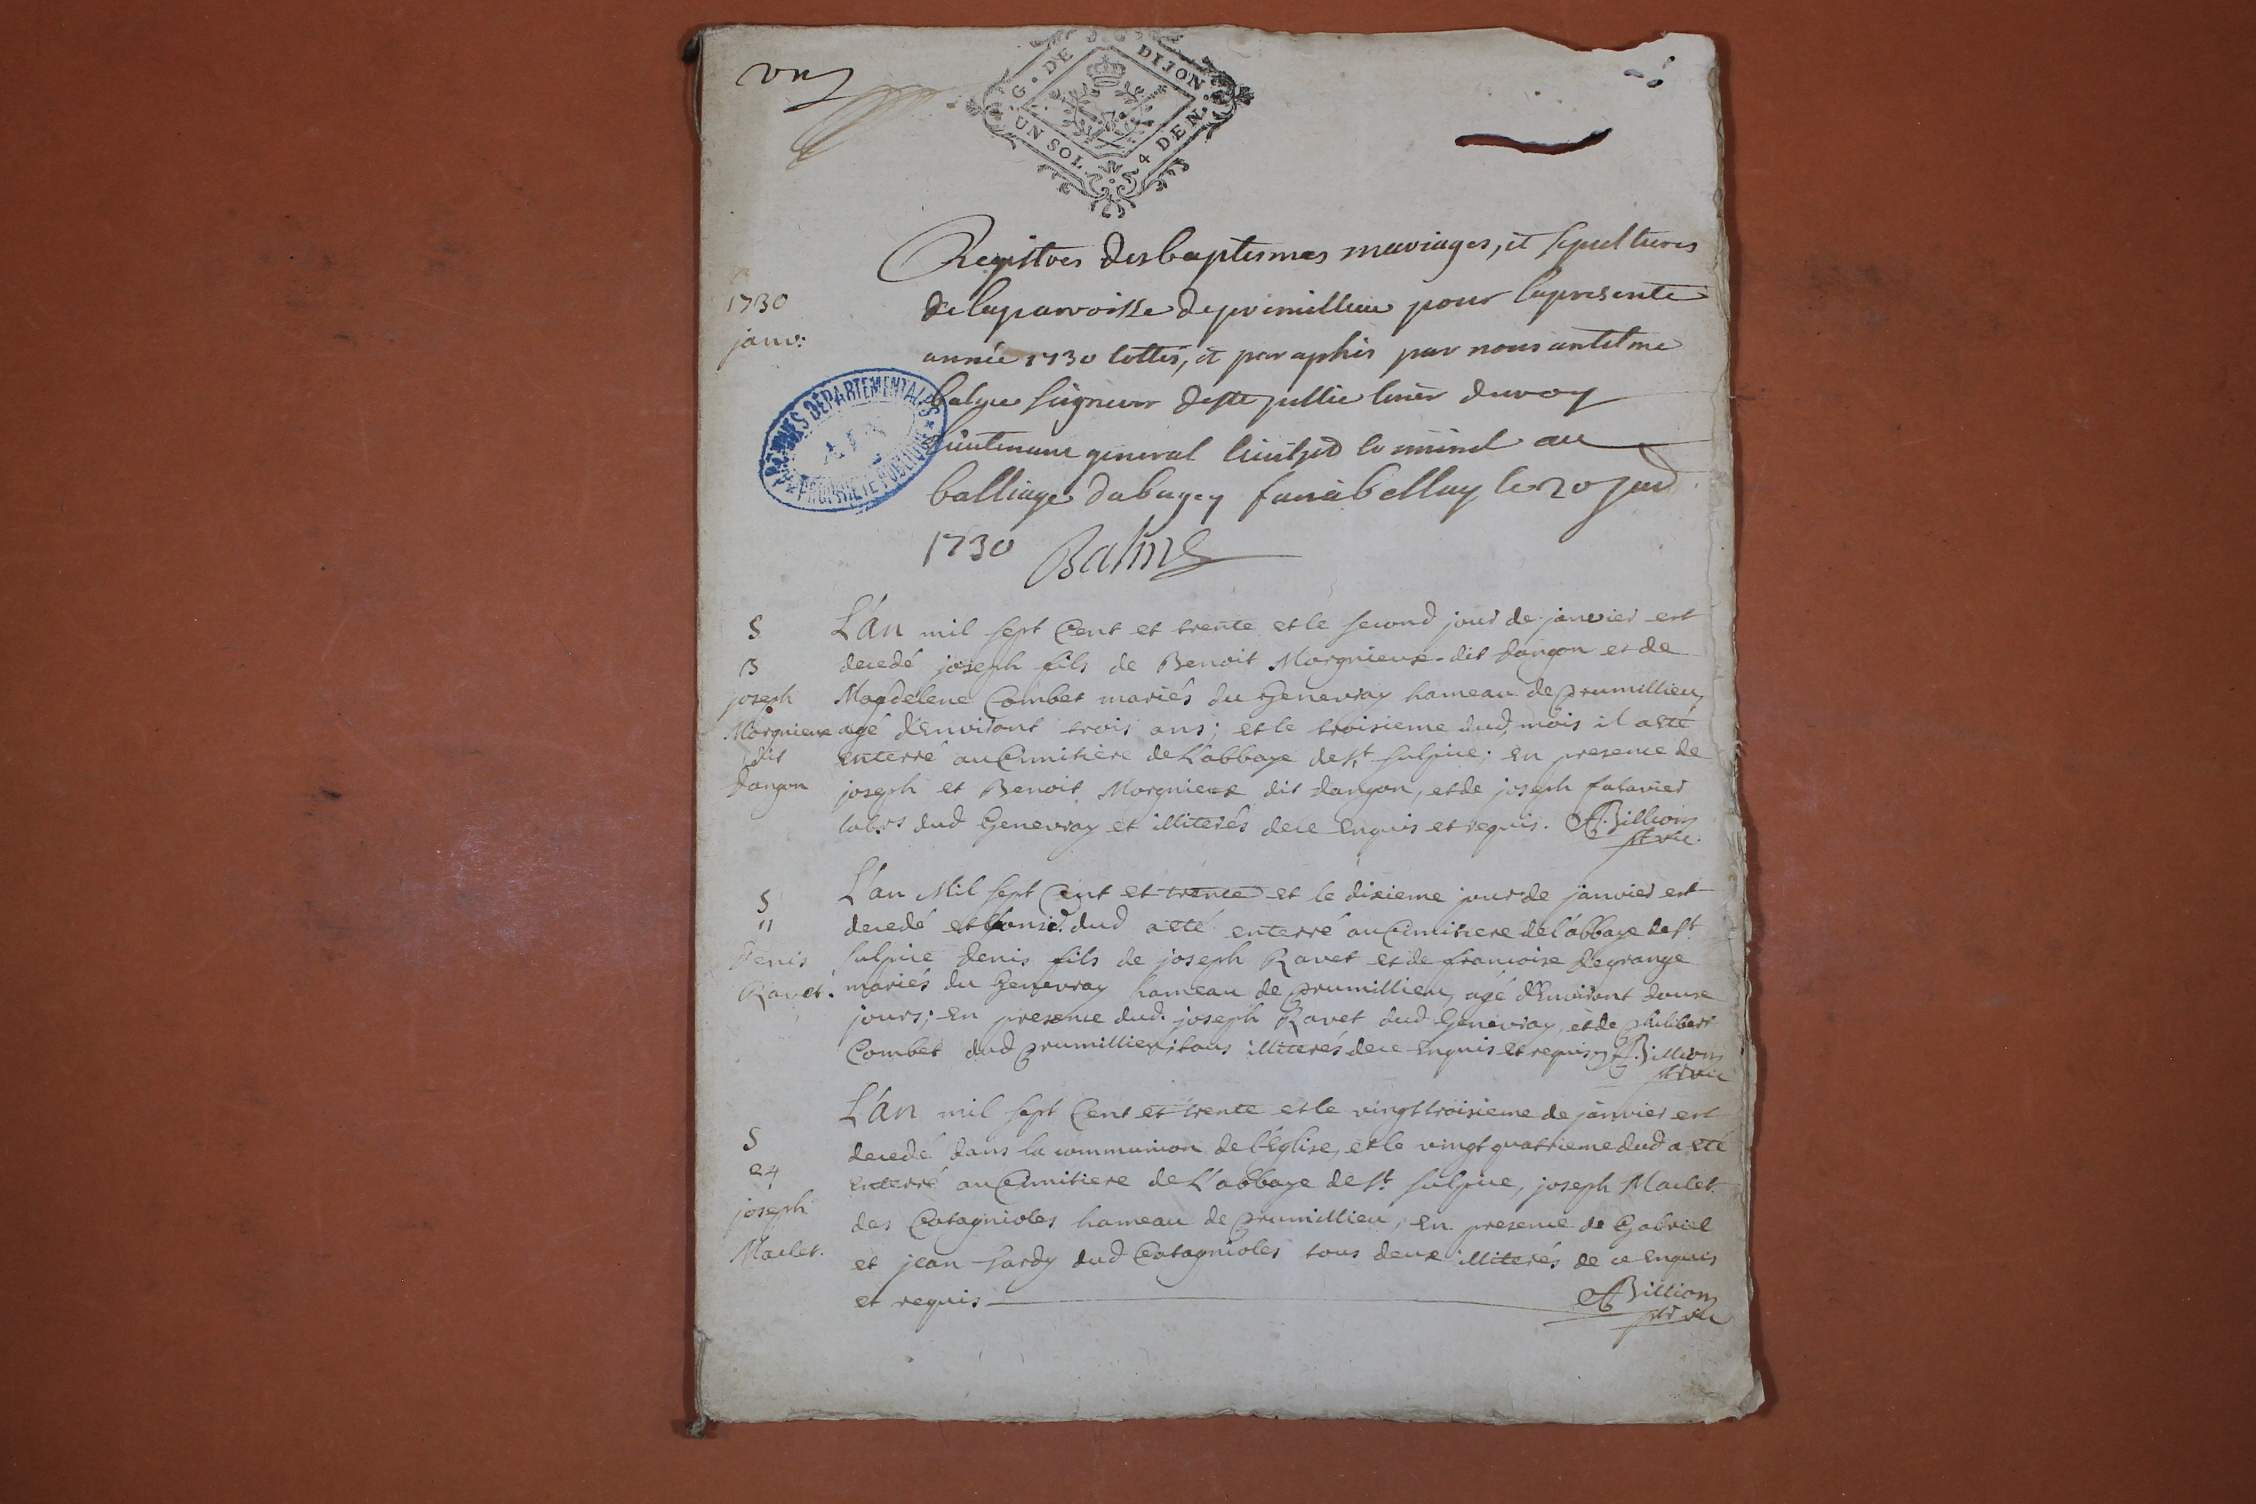 vn
G. DE DIJON
UN SOL 4 DEN.
1730
janv:
Registres des baptesmes mariages, et sepultures
de la parroisse de primillieu pour la presente
année 1730 cottés, et paraphés par nous antelme
balme seigneur de ste jullie coner du roy
lieutenant general civil et criminel au
balliage du bugey fait a belley le 20 janv
1730 Balme
ARCHIVES DÉPARTEMENTALES
AIN
PROPRIÉTÉ PUBLIQUE
S
3
joseph
Morgnieux
dit
dangon
L'an mil sept Cent et trente et le second jour de janvier est
decedé joseph fils de Benoit Morgnieux dit dangon et de
Magdelene Combet mariés du Genevray hameau de prumillieu,
agé d'Environt trois ans; et le troisieme dud. mois il a eté
enterré au Cimitiere de L'abbaye de st. sulpice; en presence de
joseph et Benoit Morgnieux dit dangon, et de joseph
labrs dud Genevray et illiterés de ce enquis et requis. Billion
ptr vic.
S
11
Denis
Ravet.
L'an Mil sept Cent et trente et le dixieme jour de janvier est
decedé et dud a eté enterré au Cimitiere de l'abbaye de st.
sulpice denis fils de joseph Ravet et de francoise Degrange
mariés du Genevray hameau de prumillieu, agé d'Environt douze
jours; en presence dud. joseph Ravet dud Genevray, et de philibert
Combet dud prumillieu; tous illiterés de ce enquis et requis Billion
ptr vic
S
24
joseph
Maclet.
L'an mil sept Cent et trente et le vingt troisieme de janvier est
decedé dans la communion de l'Eglise, et le vingt quatrieme dud a eté
enterré au Cimitiere de L'abbaye de st. sulpice, joseph Maclet
des Catagnioles hameau de prumillieu; en presence de Gabriel
et jean hardy dud Catagnioles tous deux illiterés de ce enquis
et requis Billion
ptr vic